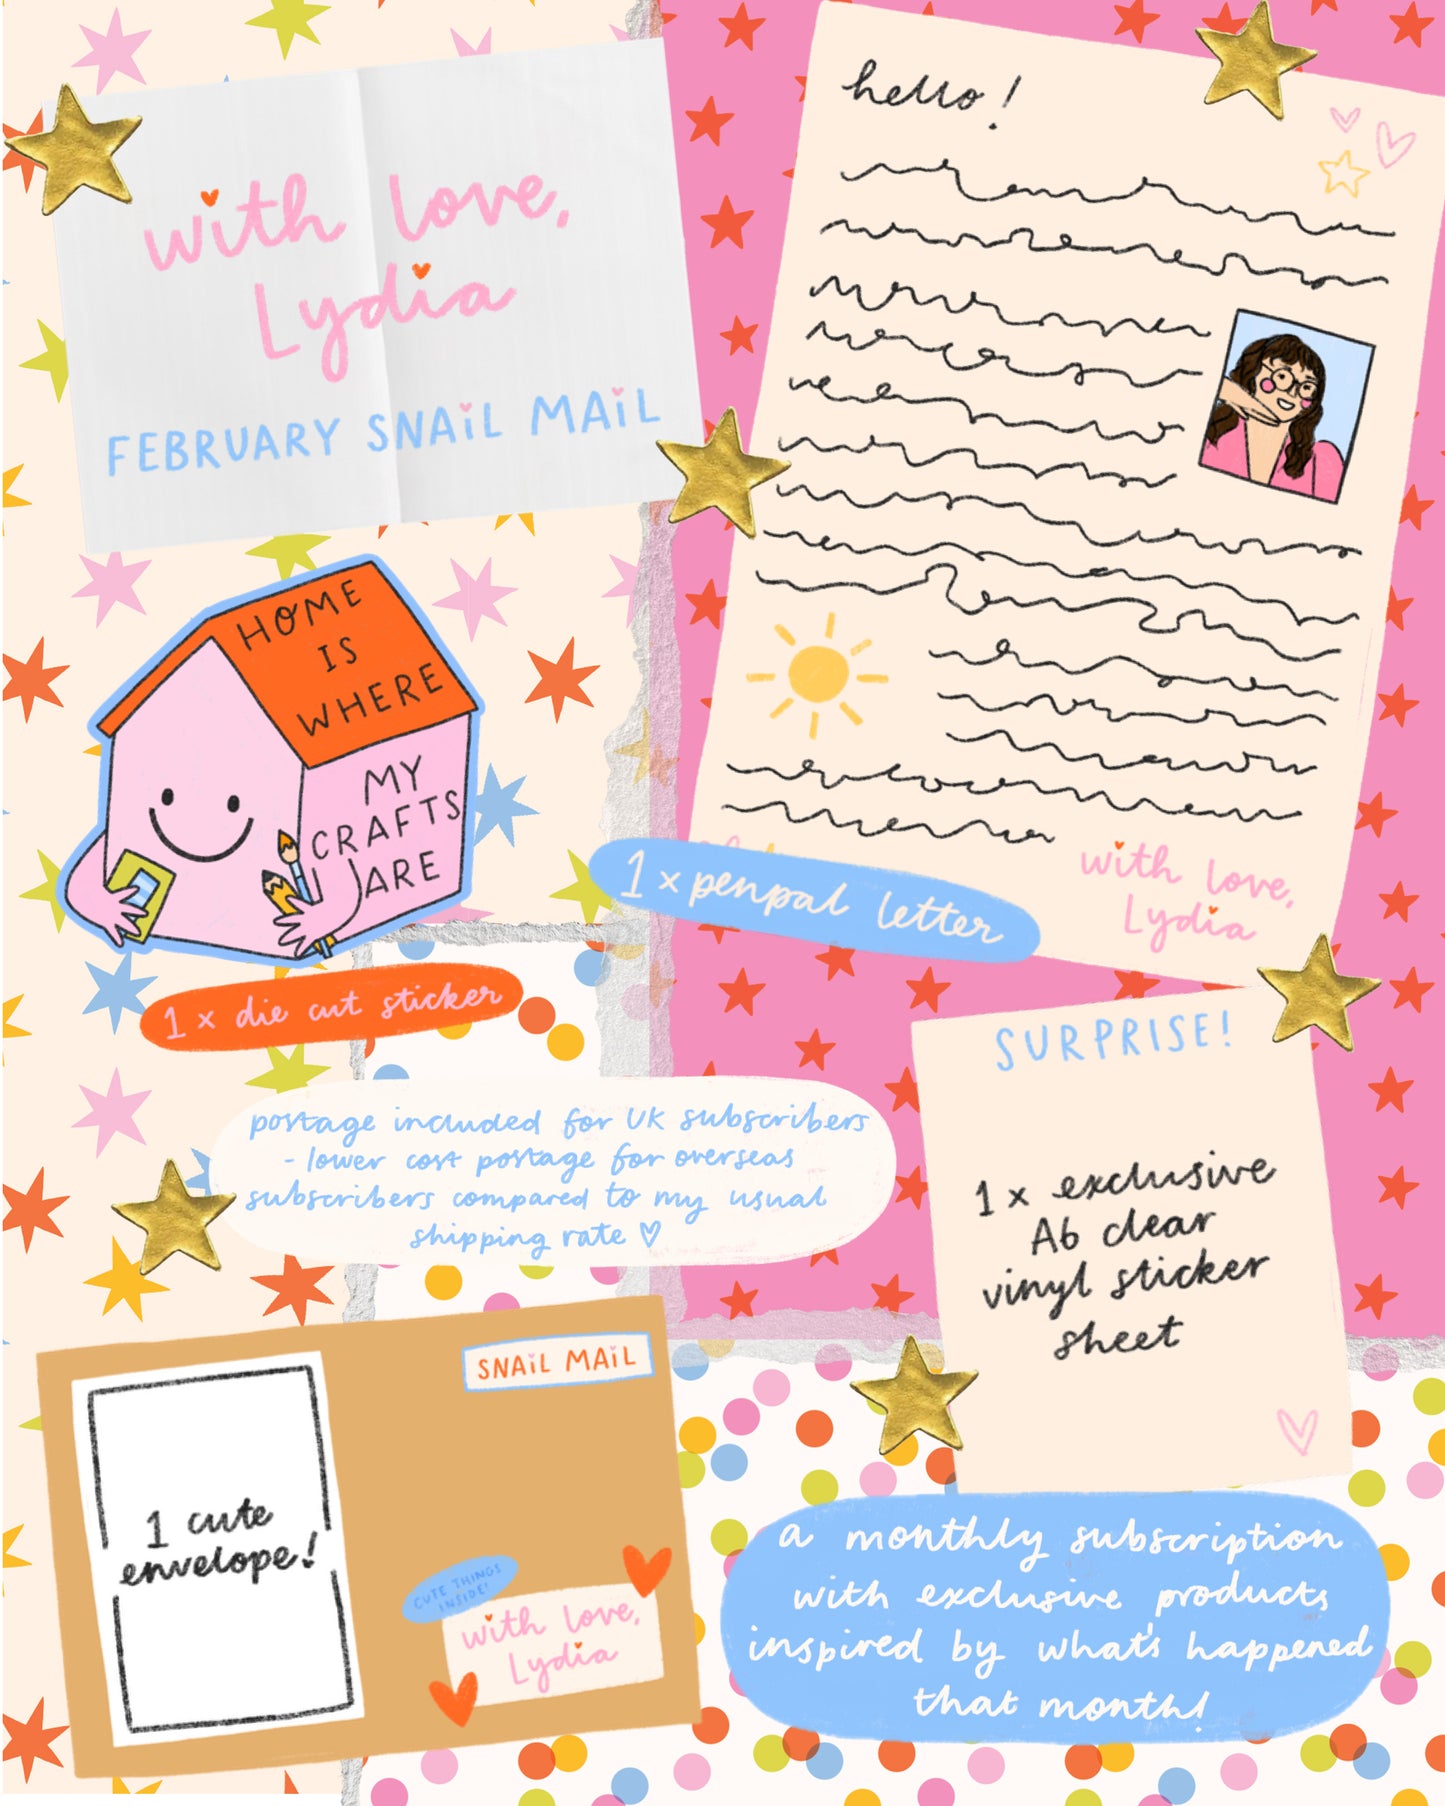 with love,
Lydia
FEBRUARY SNAIL MAIL
hello!
HOME
IS
WHERE
MY
CRAFTS
ARE
1 x die cut sticker
with love,
Lydia
1 x penpal letter
SURPRISE!
1 x exclusive
A6 clear
vinyl sticker
sheet
postage included for UK subscribers
- lower cost postage for overseas
subscribers compared to my usual
shipping rate ♡
SNAIL MAIL
1 cute
envelope!
CUTE THINGS
INSIDE!
with love,
Lydia
a monthly subscription
with exclusive products
inspired by what's happened
that month!